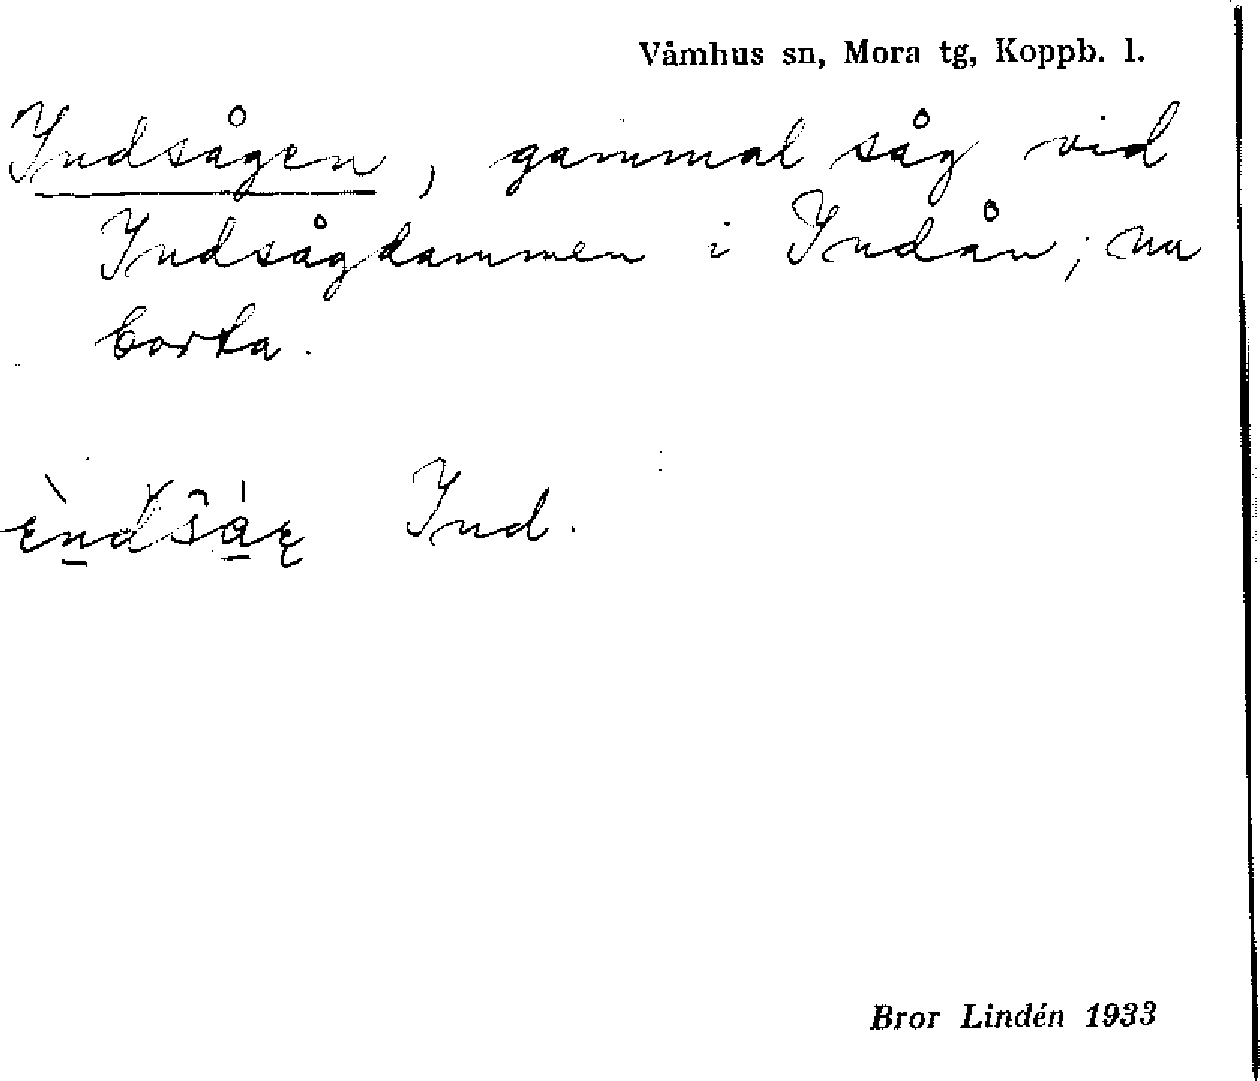 Våmhus sn, Mora tg, Koppb. l.
Indsågen, gammal såg vid
Indsågdammen i Indån; nu
borta.
Ind.
Bror Lindén 1933